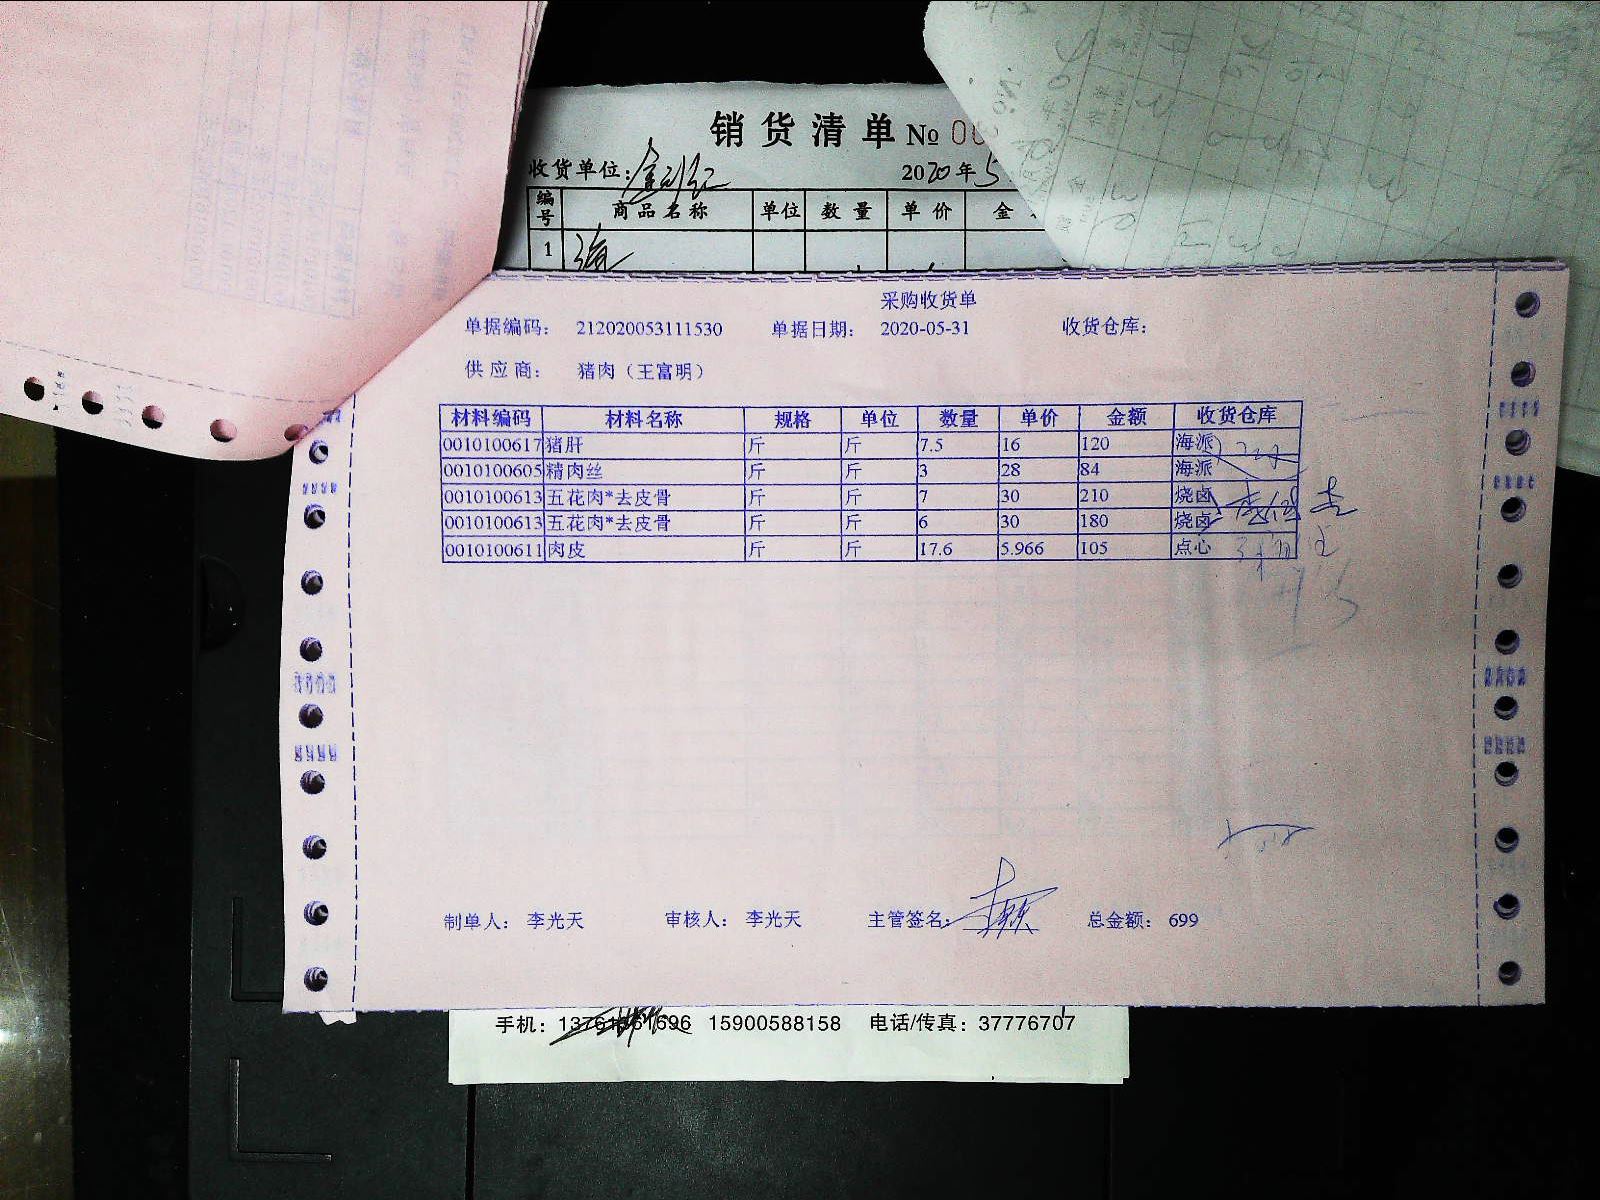 销货清单 №
收货单位: 2020年5
编号 商品名称 单位 数量 单价 金
1 海
采购收货单
单据编码： 212020053111530 单据日期： 2020-05-31 收货仓库：
供应商： 猪肉（王富明）
材料编码 材料名称 规格 单位 数量 单价 金额 收货仓库
0010100617 猪肝 斤 斤 7.5 16 120 海派
0010100605 精肉丝 斤 斤 3 28 84 海派
0010100613 五花肉*去皮骨 斤 斤 7 30 210 烧卤
0010100613 五花肉*去皮骨 斤 斤 6 30 180 烧卤
0010100611 肉皮 斤 斤 17.6 5.966 105 点心
制单人： 李光天 审核人： 李光天 主管签名： 总金额： 699
手机： 15900588158 电话/传真：37776707